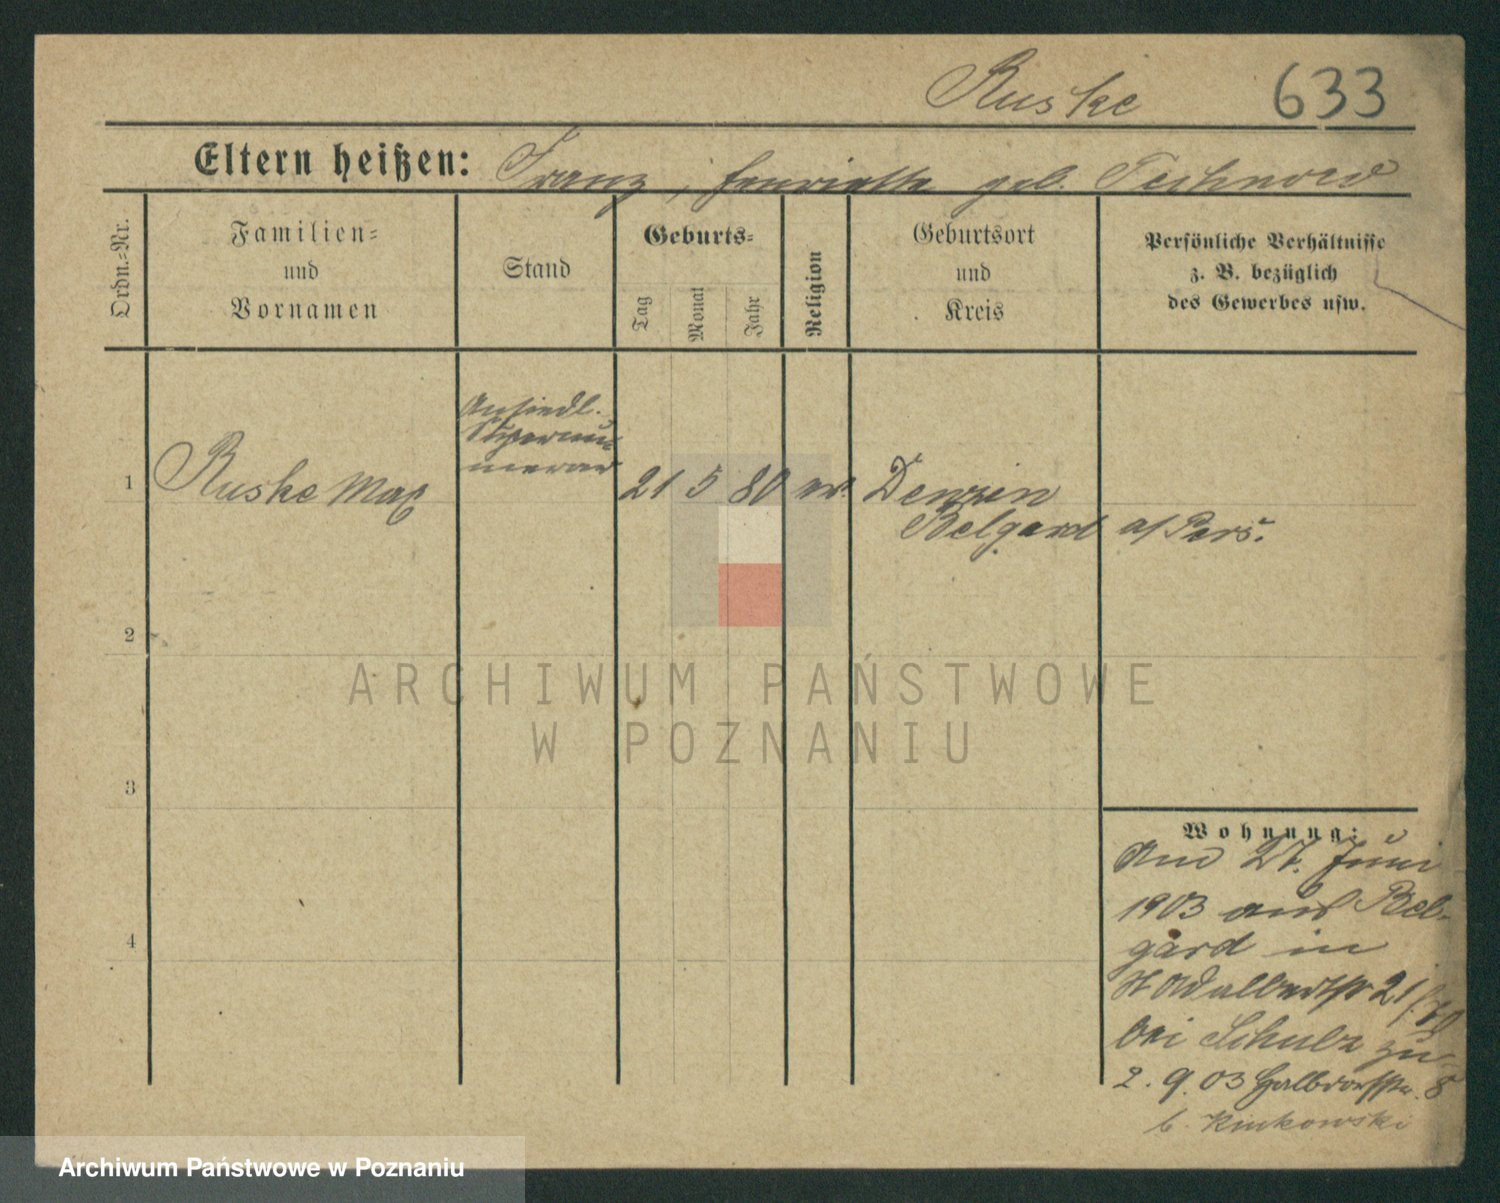 Ruske 633
Eltern heißen: Franz, Henriette geb. Technow
Ordn.-Nr.
Familien-
und
Vornamen
Stand
Geburts-
Tag
Monat
Jahr
Religion
Geburtsort
und
Kreis
Persönliche Verhältnisse
z. B. bezüglich
des Gewerbes usw.
Ansiedl.
Supernu-
merar
1 Ruske Max 21 5 80 ev. Denzin
Belgard a/Pers.
2
ARCHIWUM PAŃSTWOWE
W POZNANIU
3
Wohnung:
Am 27. Juni
1903 aus Bel-
gard in
St Adalbertstr 21
bei Schulz zu-
2. 9. 03 Halbdorfstr. 8
b. Rinkowski
4
Archiwum Państwowe w Poznaniu